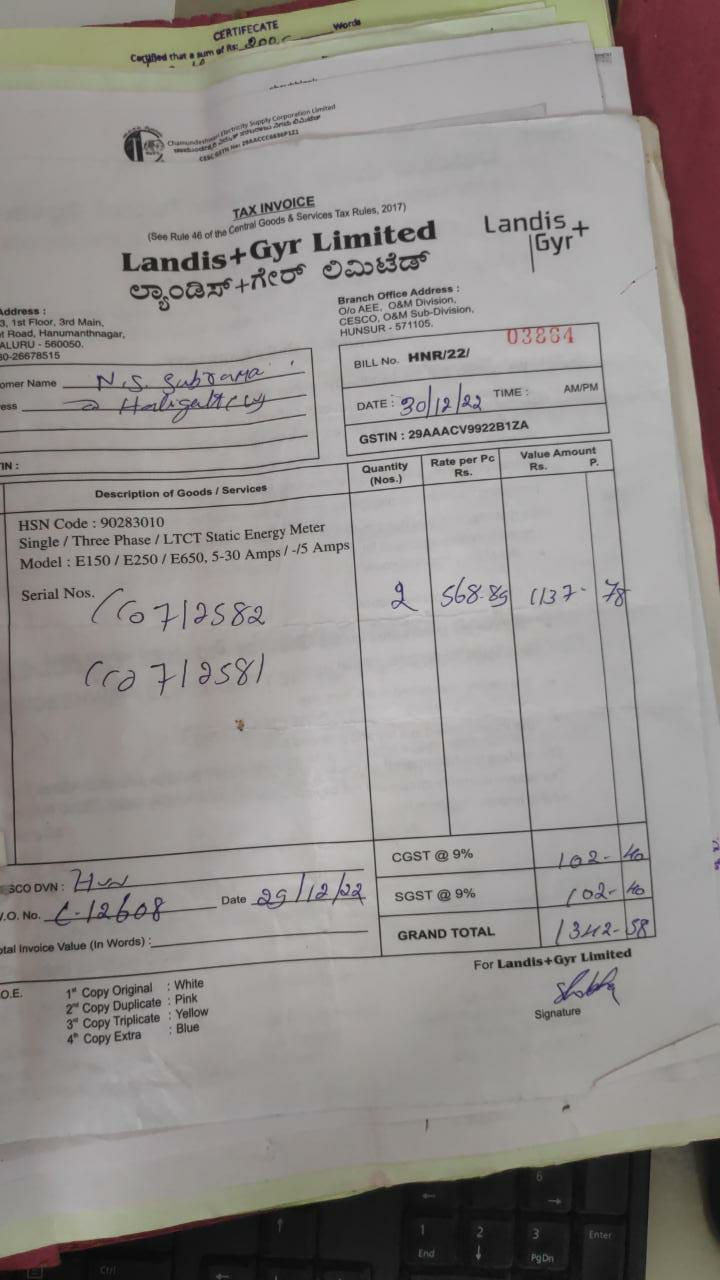 CERTIFECATE
Certified that a sum of Rs: 200. Words
Chamundeshwari Electricity Supply Corporation Limited
TAX INVOICE
(See Rule 46 of the Central Goods & Services Tax Rules, 2017)
Landis+Gyr Limited
ಲ್ಯಾಂಡಿಸ್+ಗೇರ್ ಲಿಮಿಟೆಡ್
Landis+
Gyr
Address :
3, 1st Floor, 3rd Main,
Road, Hanumanthnagar,
ALURU - 560050.
80-26678515
Branch Office Address :
O/o AEE, O&M Division,
CESCO, O&M Sub-Division,
HUNSUR - 571105.
omer Name N.S. Subrama
ess
BILL No. HNR/22/ 03864
DATE : 30/12/22 TIME : AM/PM
GSTIN : 29AAACV9922B1ZA
TIN :
Description of Goods / Services Quantity (Nos.) Rate per Pc Rs. Value Amount Rs. P.
HSN Code : 90283010
Single / Three Phase / LTCT Static Energy Meter
Model : E150 / E250 / E650, 5-30 Amps / -/5 Amps
Serial Nos. 712582 2 568.89 1137- 78
712581
CGST @ 9% 102- 40
SGST @ 9% 102- 40
GRAND TOTAL 1342- 58
SCO DVN : Hun
V.O. No. C-12608 Date 29/12/22
otal Invoice Value (In Words) :
For Landis+Gyr Limited
Signature
.O.E.
1st Copy Original : White
2nd Copy Duplicate : Pink
3rd Copy Triplicate : Yellow
4th Copy Extra : Blue
1 End
2
3 PgDn
6
Enter
Ctrl